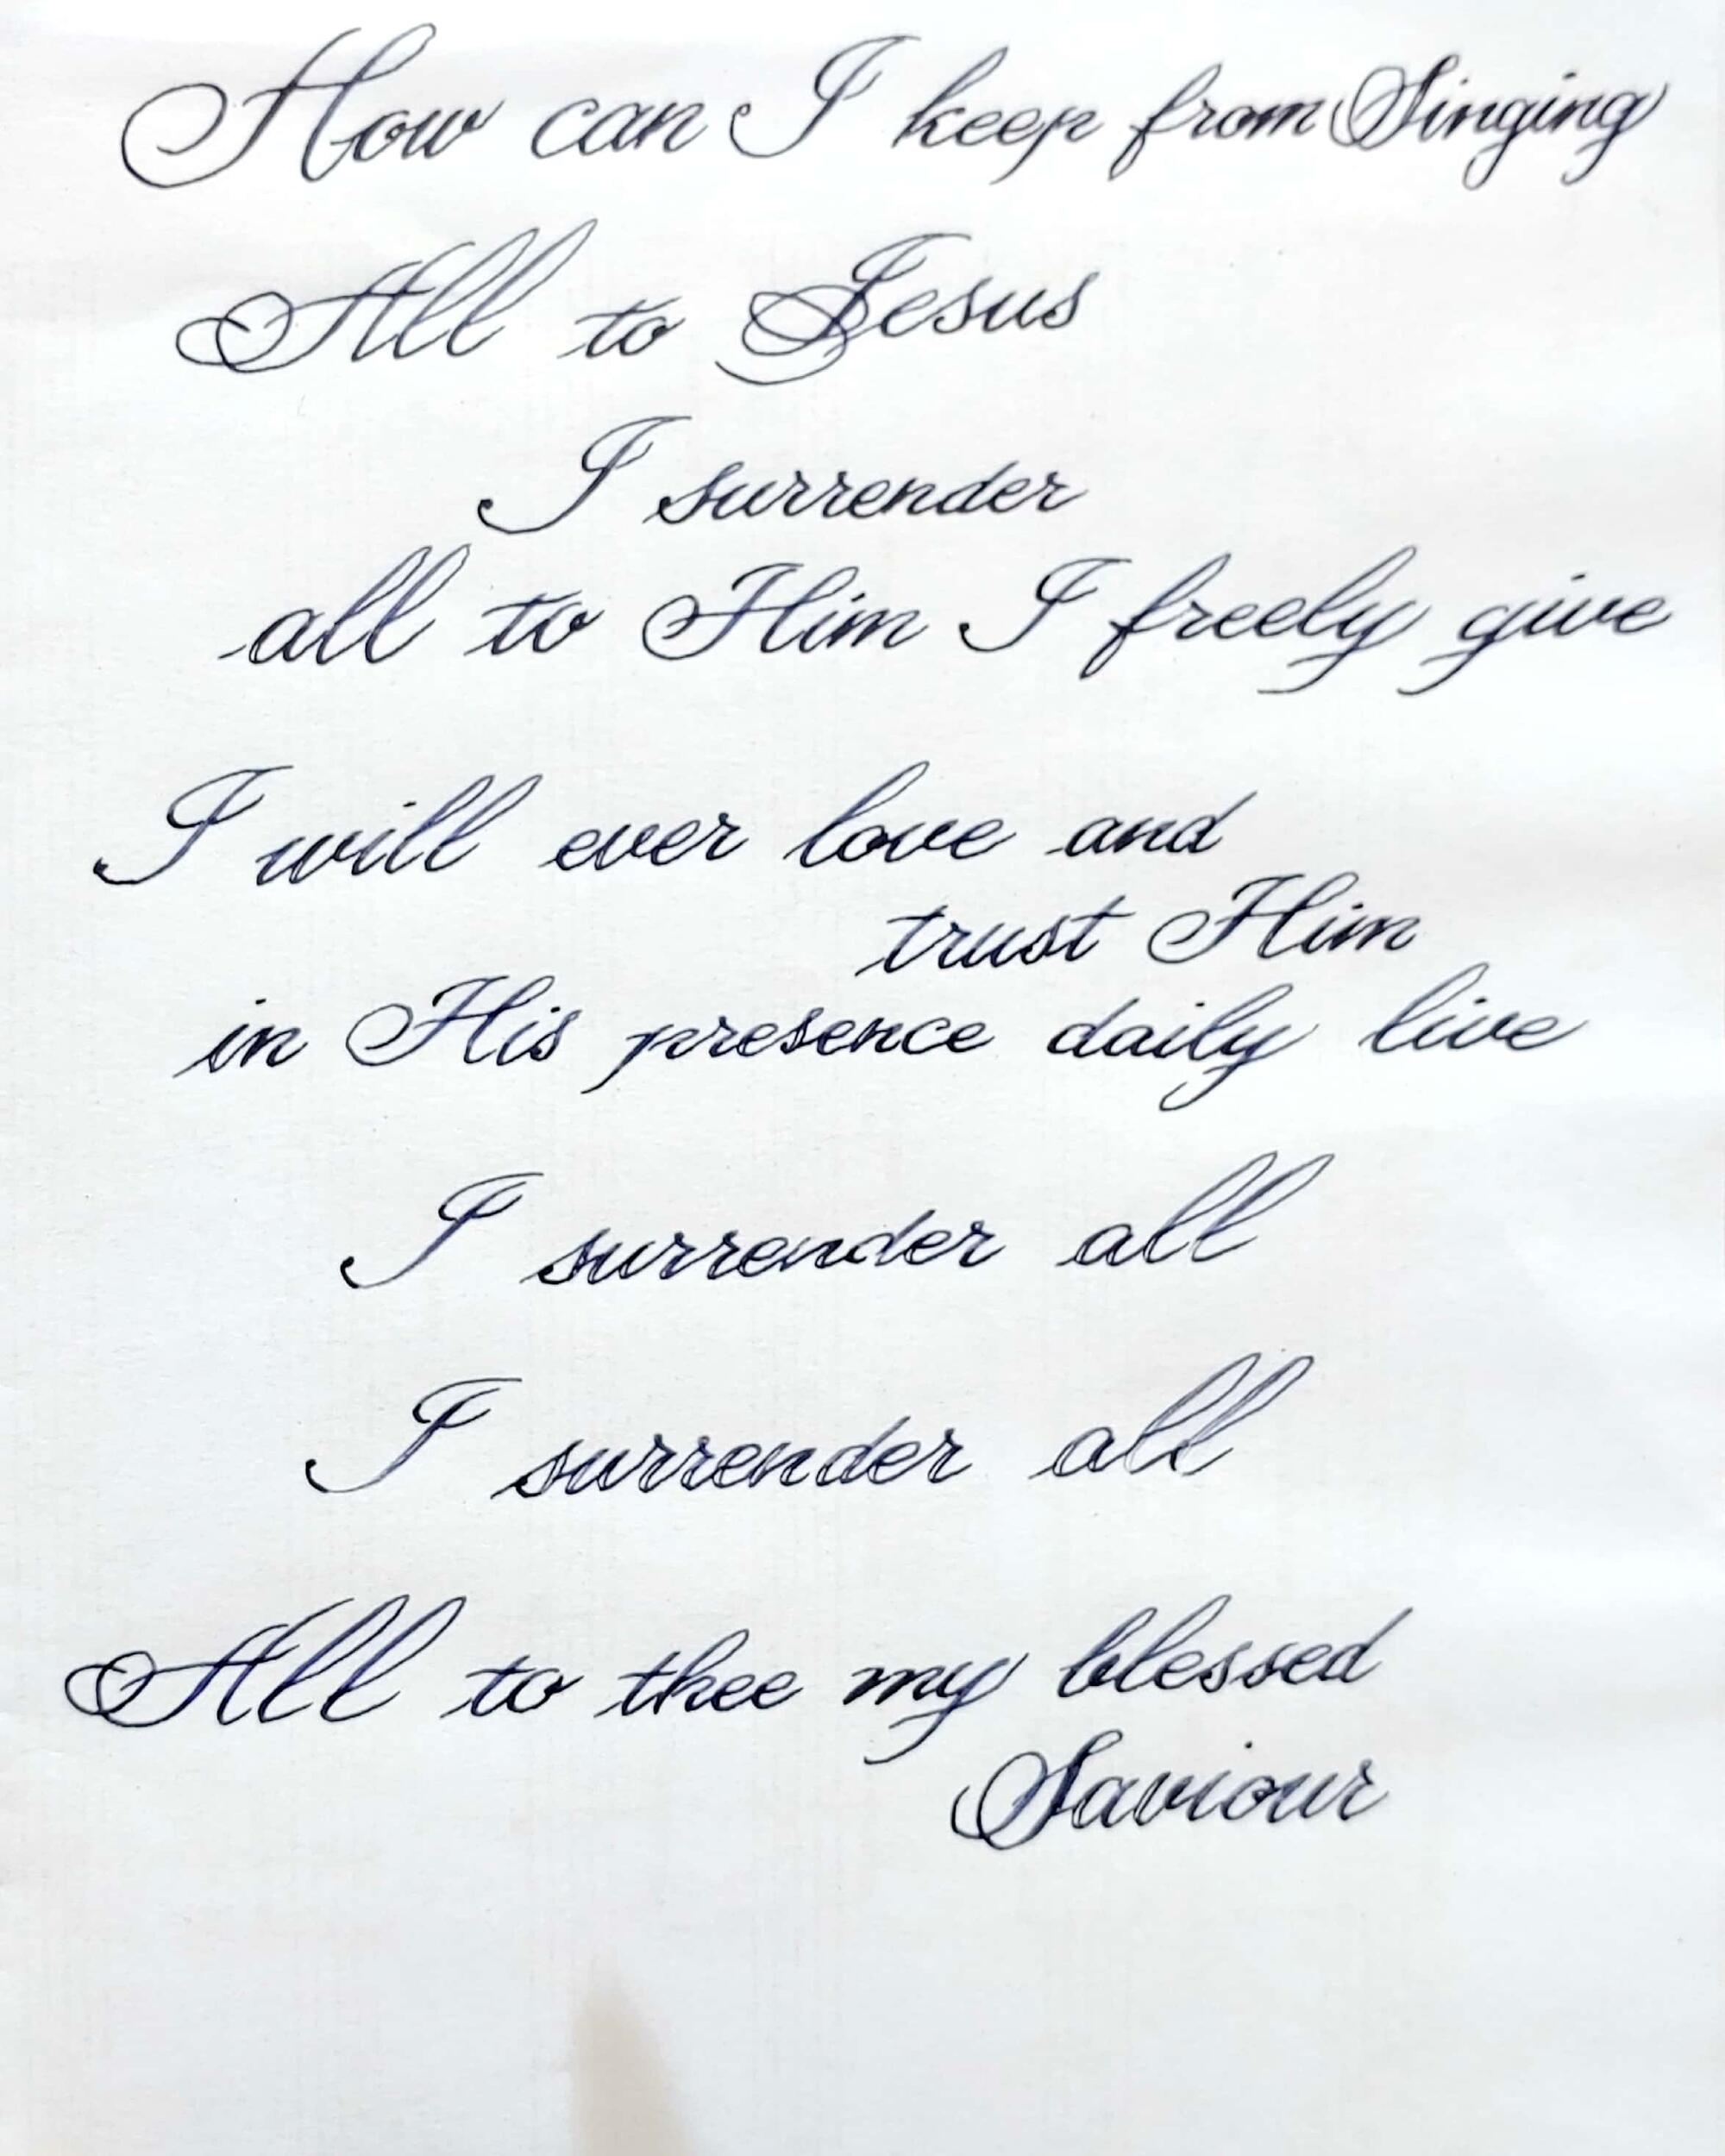 How can I keep from Singing
All to Jesus
I surrender
all to Him I freely give
I will ever love and
trust Him
in His presence daily live
I surrender all
I surrender all
All to thee my blessed
Saviour